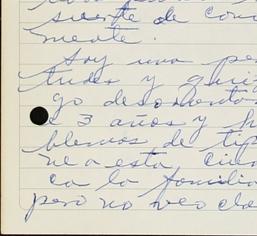 suerte de cono
mente.
Soy una per
tudes y quiz
go descontento
3 años y h
blemas de tip
ne a esta ciu
ca la familia
pero no veo cla